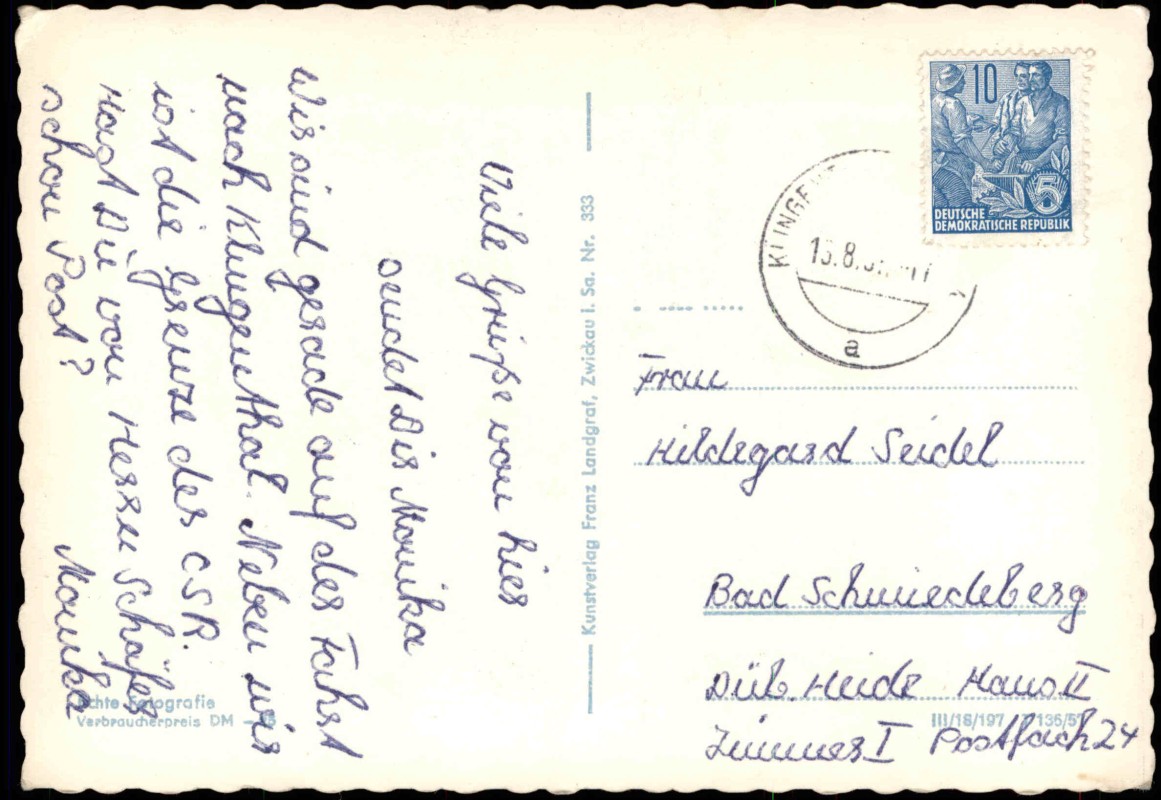 Viele Grüße von hier
sendet Dir Monika
Wir sind gerade auf der Fahrt
nach Klingenthal. Neben mir
ist die Grenze der CSR.
Hast Du von Herrn Schäfer
schon Post?
Monika
Echte Fotografie
Verbraucherpreis DM
Kunstverlag Franz Landgraf, Zwickau i. Sa. Nr. 333
10
5
DEUTSCHE
DEMOKRATISCHE REPUBLIK
a
Frau
Hildegard Seidel
Bad Schmiedeberg
Düb. Heide Haus II
III/18/197
Zimmer I Postfach 24